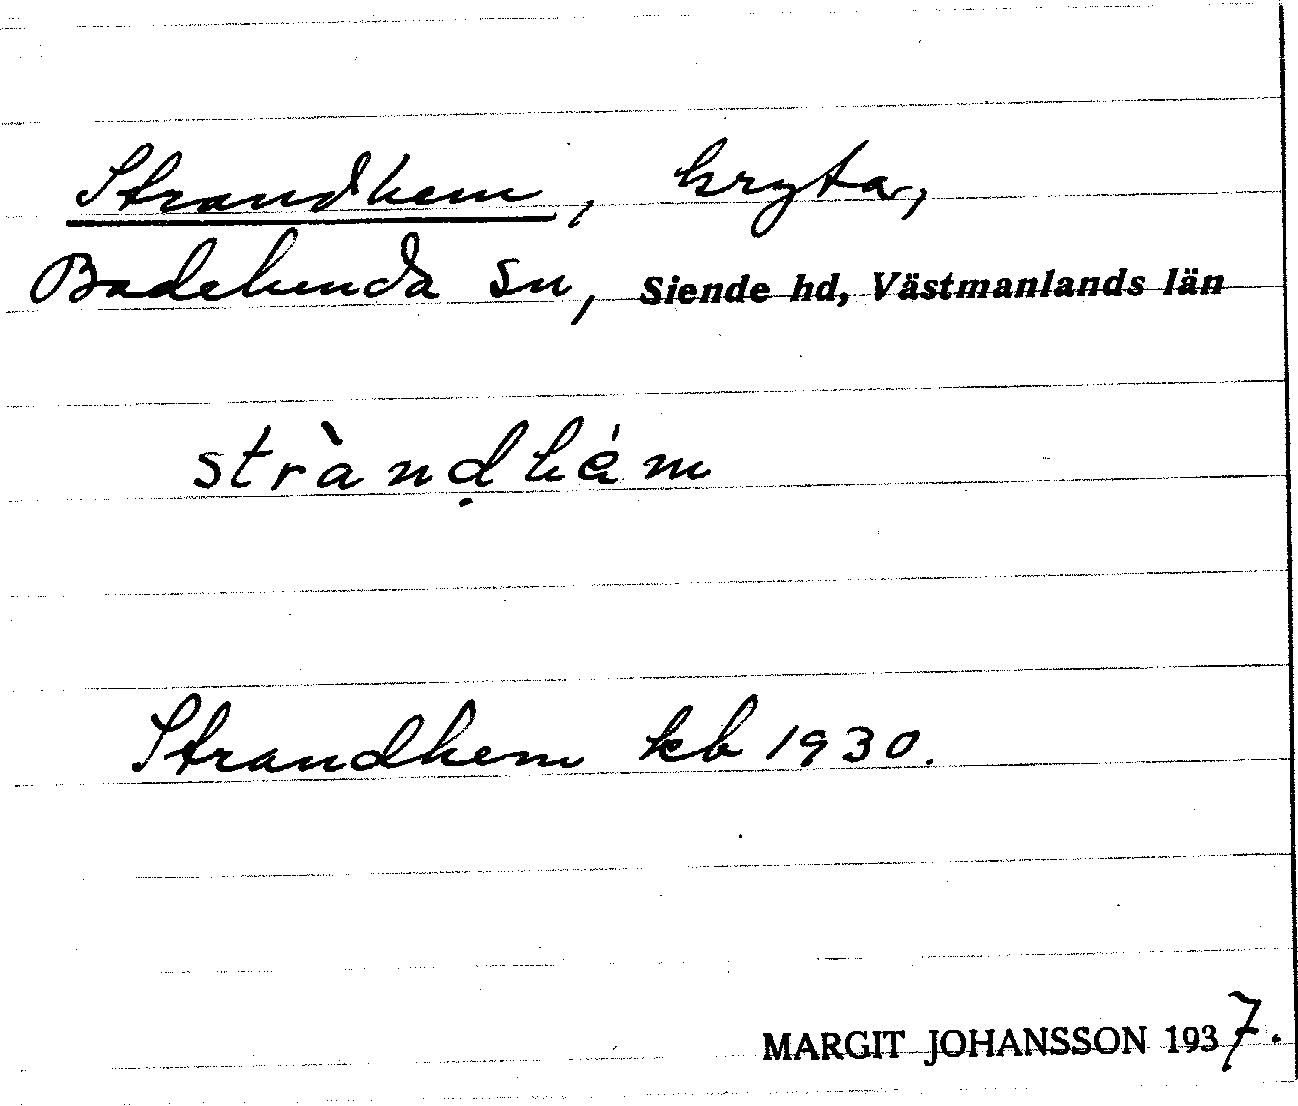 Strandhem, kryta,
Badelunda sn, Siende hd, Västmanlands län
stràndhém
Strandhem kb 1930.
MARGIT JOHANSSON 1937.